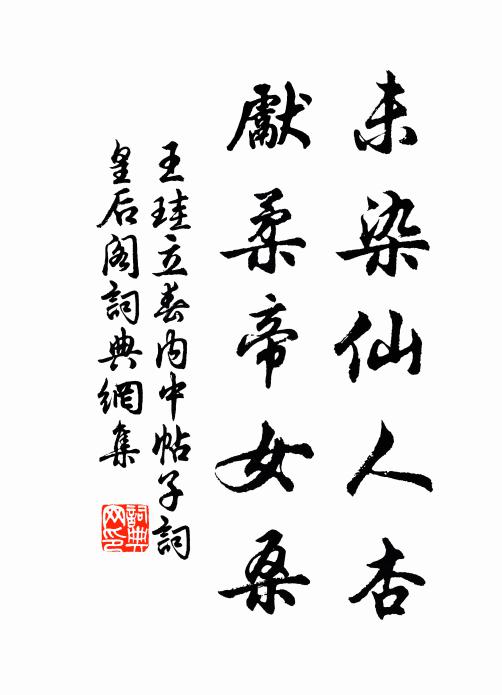 未染仙人杏
獻柔帝女桑
王珪立春内中帖子詞
皇后阁詞典網集
詞典
网印